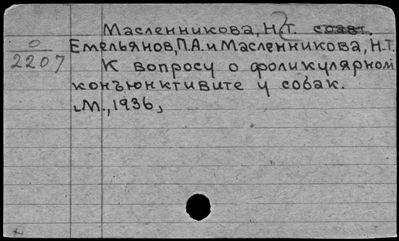 Масленникова, Н.Т. соавт.
О
2207
Емельянов, П.А. и Масленникова, Н.Т.
К вопросу о фоликулярном
конъюнктивите у собак.
М., 1936,